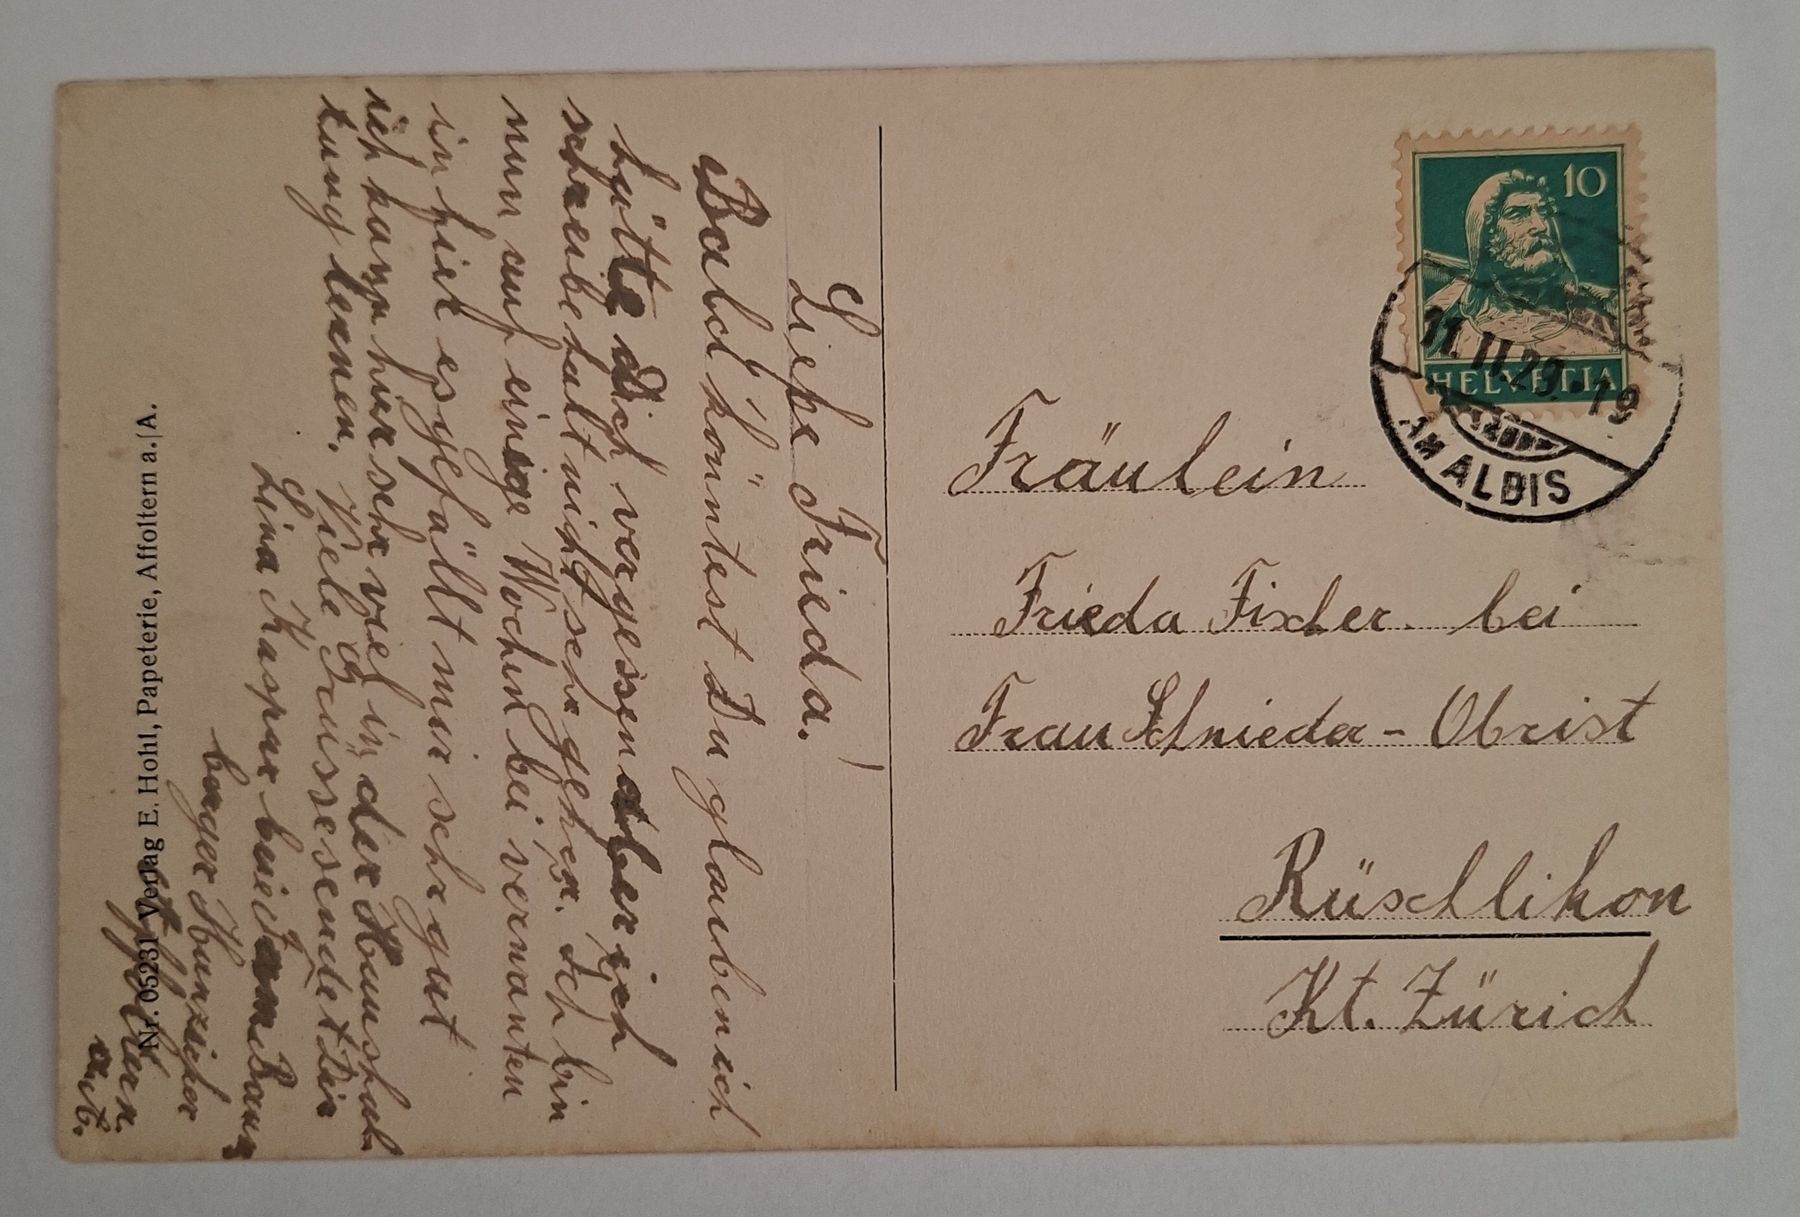 Liebe Frieda.
Bald köntest Du glauben ich
hätte Dich vergessen aber ich
schreibe halt nicht sehr gehrn. Ich bin
nun auf einige Wochen bei verwanten
in hier es gefällt mir sehr gut
ich kann hier sehr viel in der Haushal
tung lernen. Viele Grüsse sendet Dir
Lina Kaspar bei Fam. Baum
berger Hunziker
Affoltern.
a/A.
Nr. 05231 Verlag E. Hohl, Papeterie, Affoltern a./A.
10
HELVETIA
11.II.29.-19
AM ALBIS
Fräulein
Frieda Fischer. bei
Frau Schnieder-Obrist
Rüschlikon
Kt. Zürich